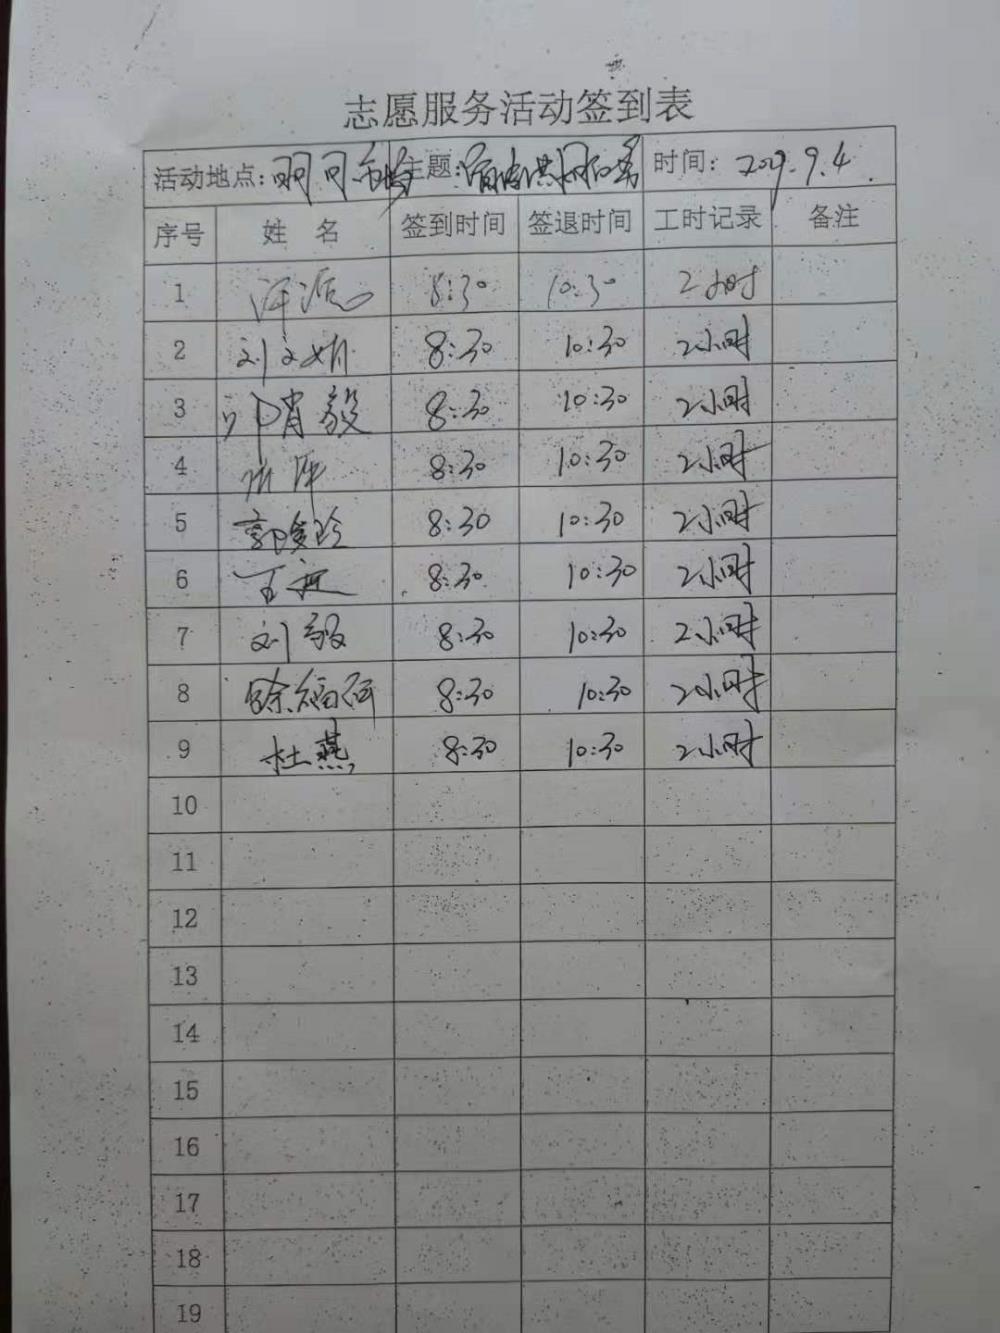 志愿服务活动签到表
活动地点: 主题: 时间: 2019.9.4.
序号 姓 名 签到时间 签退时间 工时记录 备注
1 8:30 10:30 2小时
2 刘文娟 8:30 10:30 2小时
3 肖毅 8:30 10:30 2小时
4 8:30 10:30 2小时
5 郭俊玲 8:30 10:30 2小时
6 王 8:30 10:30 2小时
7 刘毅 8:30 10:30 2小时
8 8:30 10:30 2小时
9 杜燕 8:30 10:30 2小时
10
11
12
13
14
15
16
17
18
19